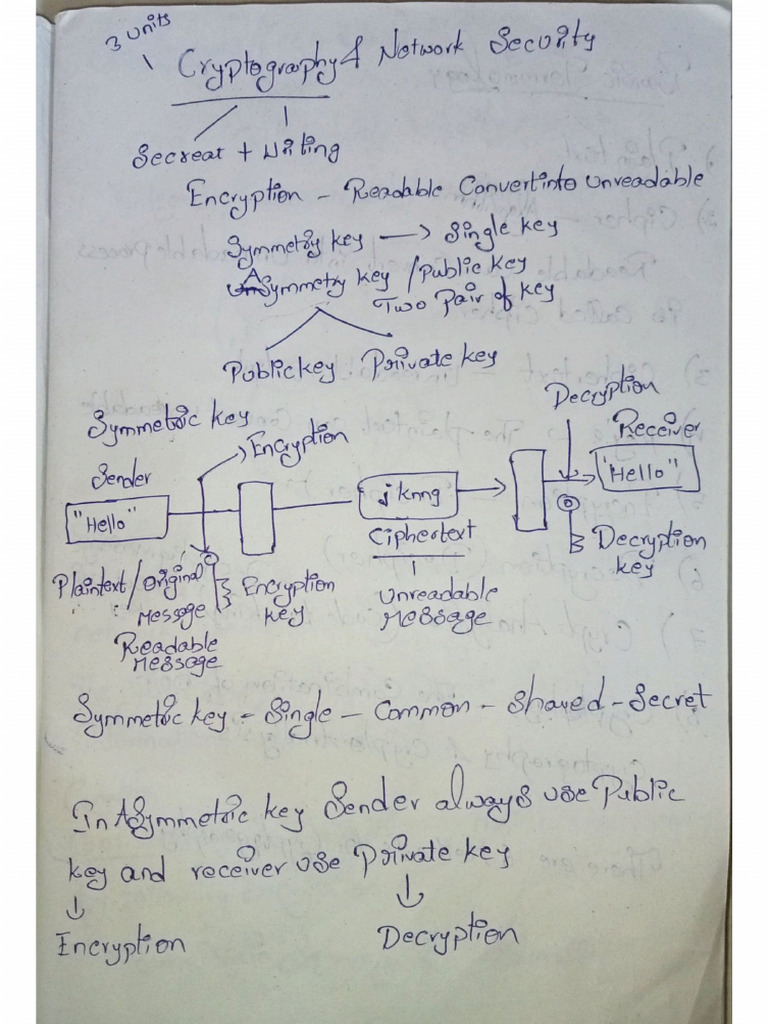 3 units
1
Cryptography & Network Security
Secreat + Writing
Encryption - Readable Convert into unreadable
Symmetry key → Single key
Asymmetry key / Public key
Two Pair of key
Public key Private key
Decryption
Symmetric key
Encryption
Receiver
Sender
"Hello"
"Hello"
jknng
Ciphertext
Decryption
key
Plaintext / Original
Message
Encryption
key
unreadable
Message
Readable
Message
Symmetric key - Single - Common - Shared - Secret
In Asymmetric key Sender always use Public
key and receiver use Private key
Encryption Decryption